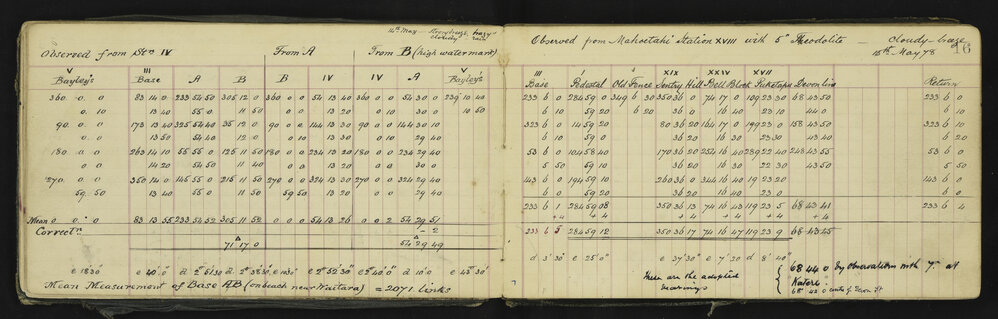 14th May – Strong breeze, hazy
cloudy rain
Observed from Stn IV From A From B (high watermark)
V III IV IV V
Bayley's Base A B B IV IV A Bayley's
360 0 0 83 14 0 233 54 50 305 12 0 360 0 0 54 13 40 360 0 0 54 30 0 239 10 50
0 10 13 40 55 0 11 50 0 0 13 20 0 10 30 0 10 40
90 0 0 173 13 40 325 54 40 35 12 0 90 0 0 144 13 30 90 0 0 144 30 10
0 0 13 50 54 40 12 0 0 0 13 10 0 10 29 40
180 0 0 263 14 10 55 55 0 125 11 50 180 0 0 234 13 20 180 0 0 234 29 40
0 0 14 20 54 50 11 40 0 0 13 20 0 0 29 50
270 0 0 350 14 0 145 55 0 215 11 50 270 0 0 324 13 30 270 0 0 324 29 40
59 50 13 40 55 0 11 50 59 50 13 20 0 0 29 40
Mean 0 0 0 83 13 55 233 54 52 305 11 52 0 0 0 54 13 26 0 0 2 54 29 51
Correctn – 2
71 17 0 54 29 49
Mean Measurement of Base AB (on beach near Waitara) = 2071 links
Observed from Mahoetahi Station XVIII with 5" Theodolite – Cloudy – breeze
15th May 78
16
III XIX XXIV XVII
Base Pedestal Old Fence Sentry Hill Bell Block Puketapu Devon Line Return
233 6 0 284 59 0 349 6 30 350 36 0 74 17 0 119 23 30 68 43 50 233 6 0
6 10 59 20 6 20 36 0 16 50 23 10 43 40 6 10
323 6 0 14 59 20 80 36 20 164 17 0 199 23 0 158 43 50 323 6 10
6 10 59 0 36 20 16 30 23 30 43 40 6 20
53 6 0 104 58 40 170 36 20 254 16 40 289 22 40 248 43 55 53 6 0
5 50 59 10 36 10 16 30 22 30 43 50 5 50
143 6 0 194 59 10 260 36 0 344 16 40 19 23 20 143 6 0
6 0 59 20 36 20 16 40 23 0 6 0
233 6 1 284 59 08 350 36 13 74 16 43 119 23 5 68 43 41 233 6 4
+ 4 + 4 + 4 + 4 + 4 + 4
233 6 5 284 59 12 350 36 17 74 16 47 119 23 9 68 43 45
d 3' 30" e 25' 0" e 37' 30" e 7' 30" d 8' 40"
These are the adopted
bearings
68 44 0 by observations with 7" at
Katere